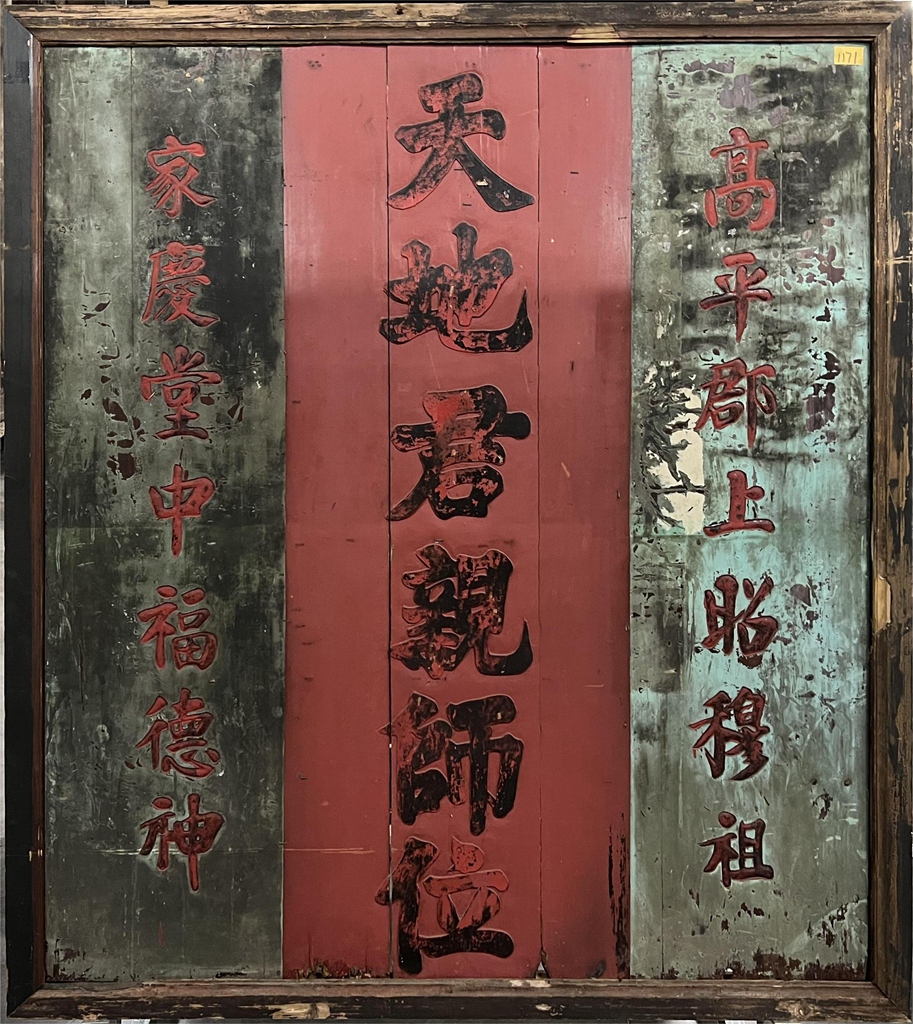 高平郡上昭穆祖
天地君親師位
家慶堂中福德神
1171